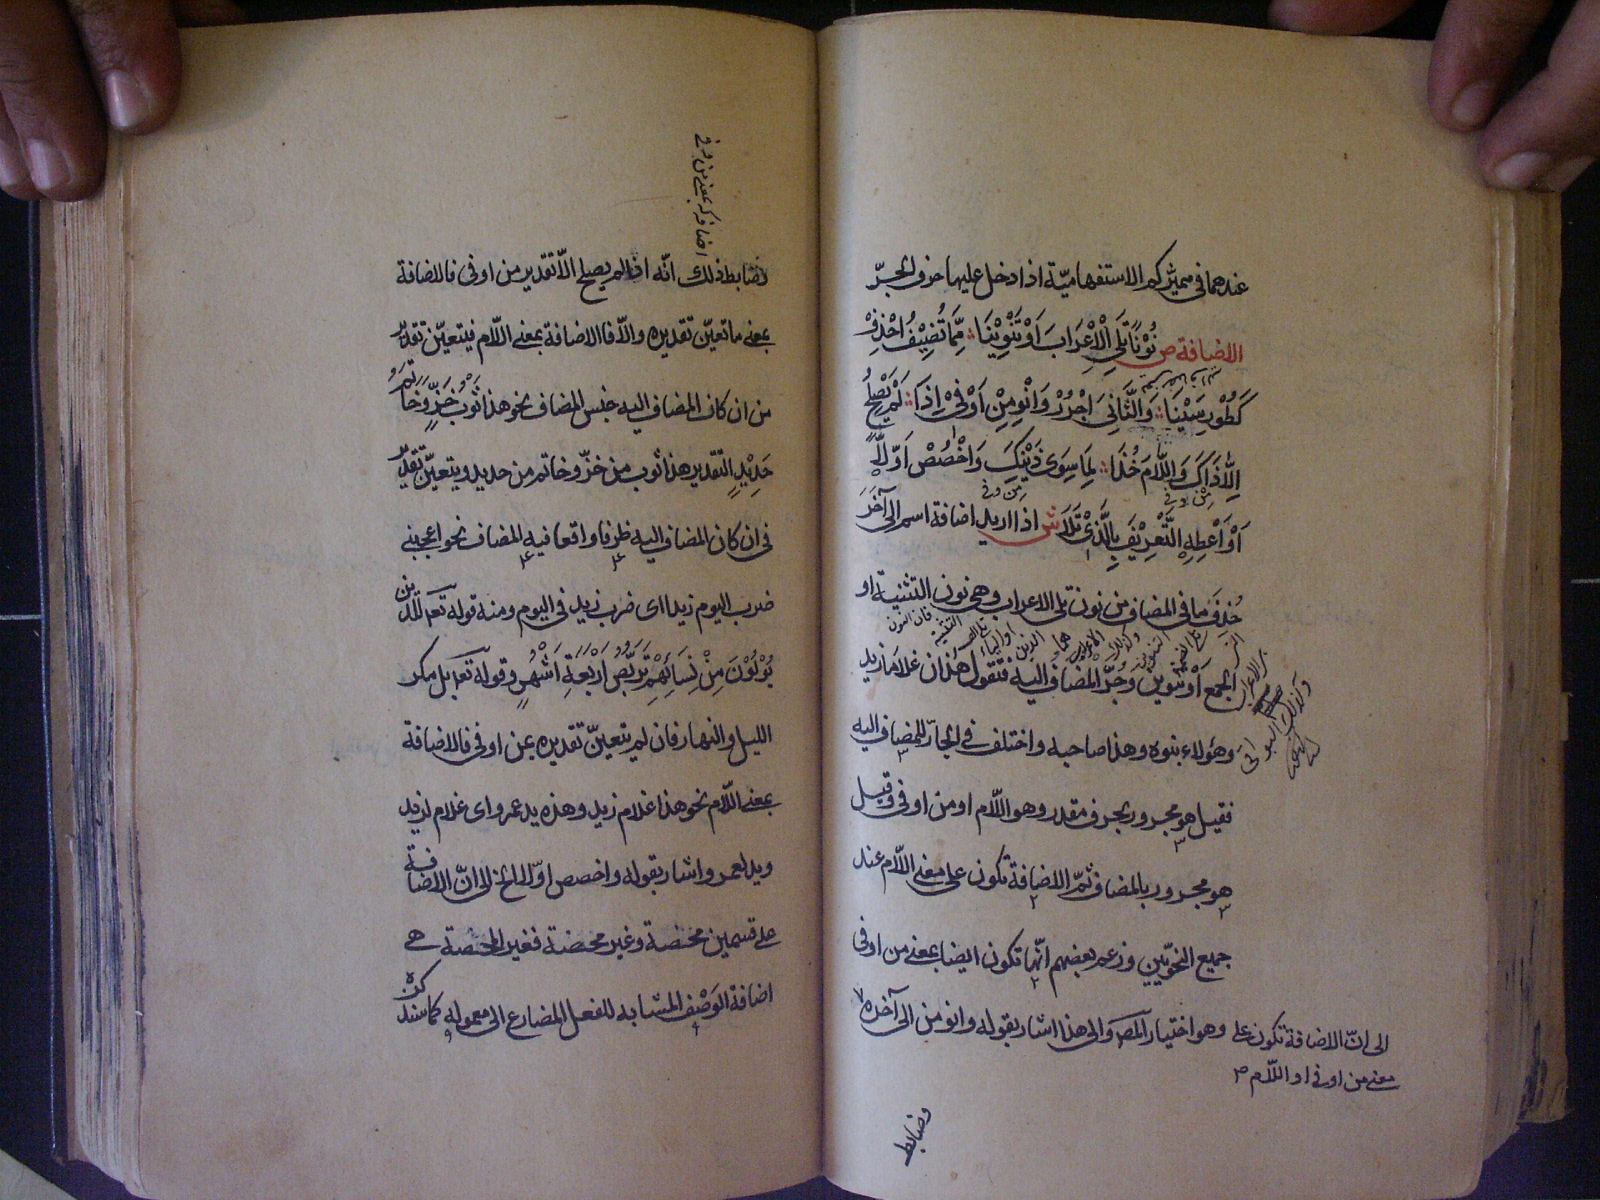 عندهما فى مميّز كم الاستفهاميّة اذا دخل عليها حرف الجرّ
الاضافة ص نُوْنًا تَلِي الْاِعْرَابَ اَوْ تَنْوِيْنَا ؞ مِمَّا تُضِيْفُ احْذِفْ
كَطُوْرِ سَيْنَا ؞ وَالثَّانِيَ اجْرُرْ وَانْوِ مِنْ اَوْ فِيْ اِذَا ؞ لَمْ يَصْلُحْ
اِلَّا ذَاكَ وَاللَّامَ خُذَا ؞ لِمَا سِوَى ذَيْنِكَ وَاخْصُصْ اَوَّلَا
مِن وفى
من وفى
اَوْ اَعْطِهِ التَّعْرِيْفَ بِالَّذِيْ تَلَا ش اذا اريد اضافة اسم الى آخَرَ
حُذِفَ ما فى المضاف من نون تلى الاعراب وهى نون التثنية او
الجمع اَوْ تنوين وجُرَّ المُضاف اليه فتقول هذان غلاما زيد
وهٰؤلاء بنوه وهذا صاحبه واختلف فى الجارّ للمضاف اليه
فقيل هو مجرور بحرف مقدر وهو اللّام او من او فى وقيل
هو مجرور بالمضاف ثمّ الاضافة تكون على معنى اللّام عند
جميع النحويّين وزعم بعضهم انّها تكون ايضا بمعنى من او فى
وهو اختيار المصَ والى هذا اشار بقوله وانو من الى آخره
الى انّ الاضافة تكون على
معنى من او فى او اللّام ص
وضابط
اضافه كه بمعنى من وفى
وضابط ذلك انّه اذا لم يصلح الّا تقدير من او فى فالاضافة
بمعنى ما تعيّن تقديره والّا فالاضافة بمعنى اللّام فيتعيّن تقدير
من ان كان المضاف اليه جنس المضاف نحو هذا ثَوْبُ خَزٍّ وَخَاتَمُ
حَدِيْدٍ التقدير هذا ثوب من خزّ وخاتم من حديد ويتعيّن تقدير
فى ان كان المضاف اليه ظرفا واقعا فيه المضاف نحو اعجبنى
ضرب اليوم زيدا اى ضرب زيد فى اليوم ومنه قوله تعَ للّذين
يُوْلُوْنَ مِنْ نِسَائِهِمْ تَرَبُّصُ اَرْبَعَةِ اَشْهُرٍ وقوله تعَ بل مكر
الليل والنهار فان لم يتعيّن تقديره بمن او فى فالاضافة
بمعنى اللّام نحو هذا غلام زيد وهذه يد عمرو اى غلام لزيد
ويد لعمرو واشار بقوله واخصص اوّلا الخ الى انّ الاضافة
على قسمين محضة وغير محضة فغير المحضة هى
اضافة الوَصْف المشابه للفعل المضارع الى معموله كما سنذكره